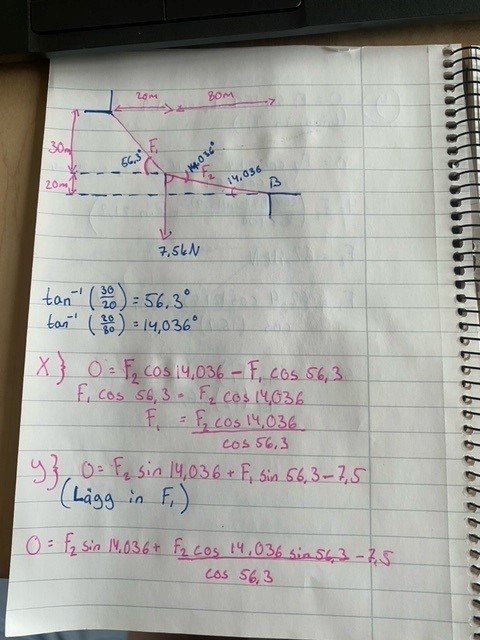 20m 80m
30m
20m
56,3° F₁ 14,036° F₂ 14,036 B
7,5kN
tan⁻¹ (30/20) = 56,3°
tan⁻¹ (20/80) = 14,036°
X} 0 = F₂ cos 14,036 - F₁ cos 56,3
F₁ cos 56,3 = F₂ cos 14,036
F₁ = F₂ cos 14,036 / cos 56,3
y} 0 = F₂ sin 14,036 + F₁ sin 56,3 - 7,5
(Lägg in F₁)
0 = F₂ sin 14,036 + F₂ cos 14,036 sin 56,3 / cos 56,3 - 7,5